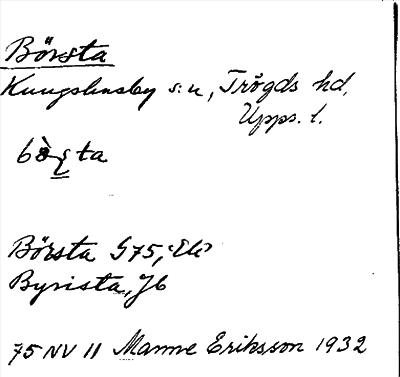 Börsta
Kungshusby s:n, Trögds hd,
Upps. l.
Börsta G75, Ek
Byrista, Jb
75 NV 11 Manne Eriksson 1932